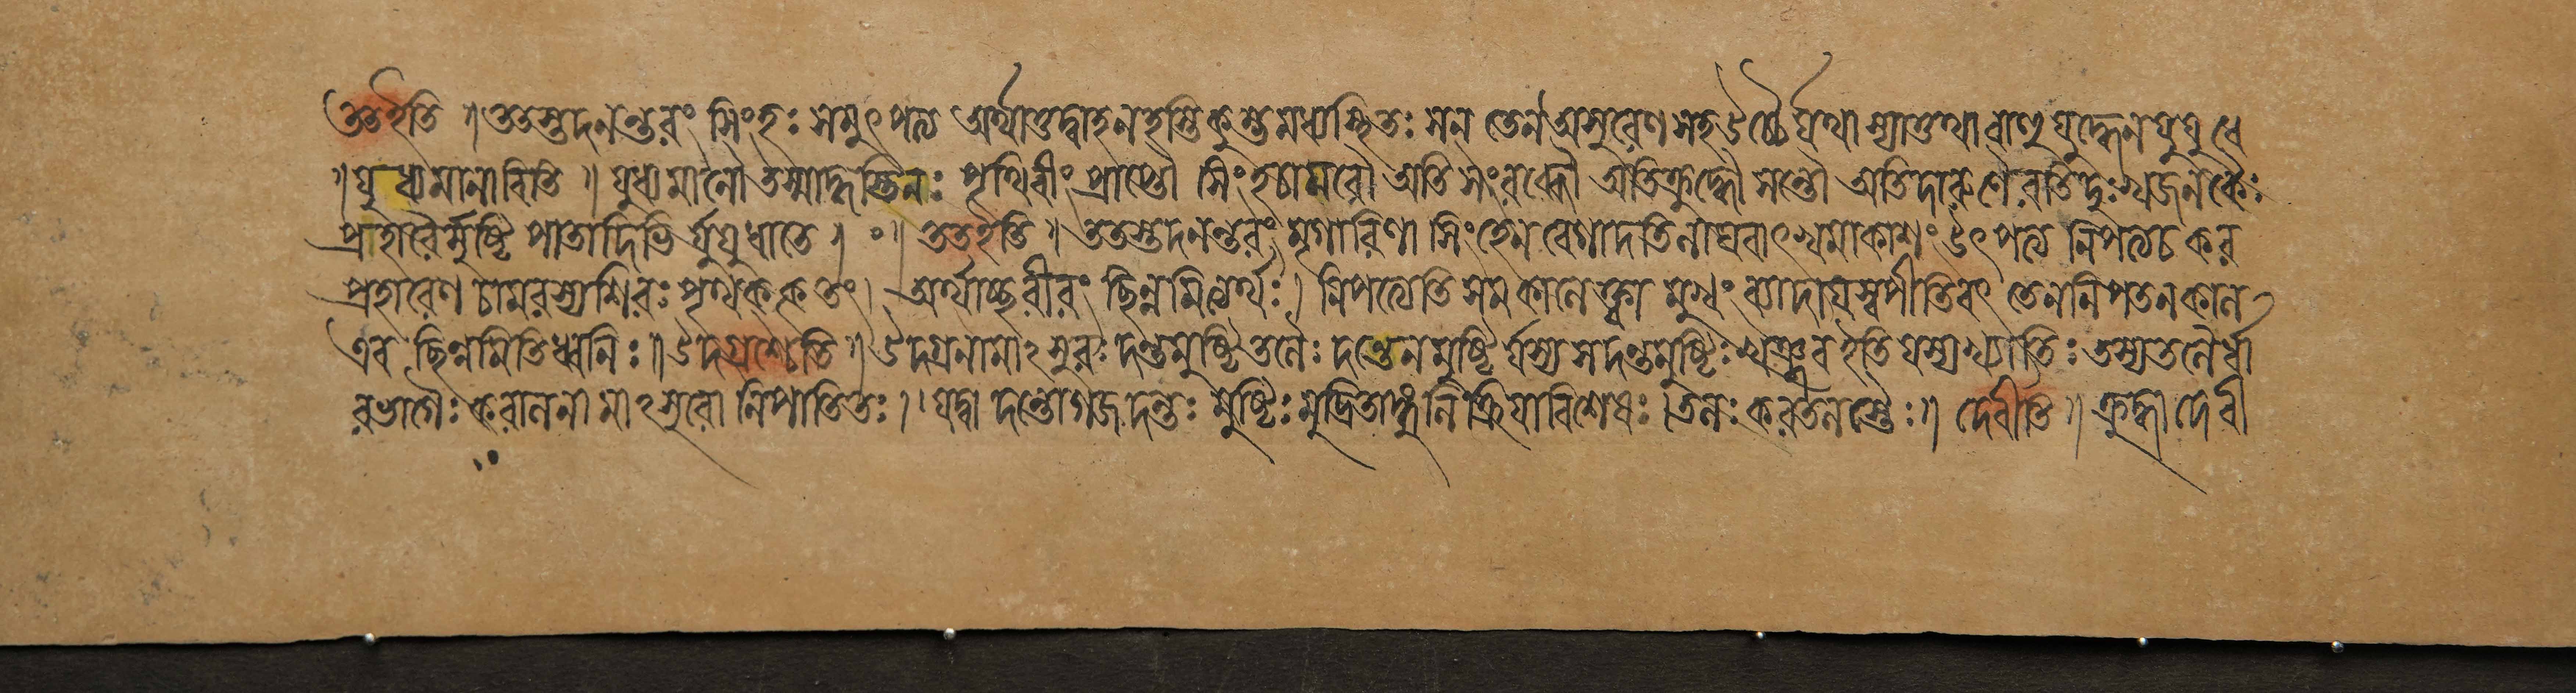 ততইতি ॥ ততস্তদনন্তরং সিংহঃ সমুৎপত্য অর্থাত্তদ্বাহনহস্তিকুম্ভমধ্যস্থিতঃ সন তেন অসুরেণ সহ উচ্চৈর্যথা স্যাত্তথা বাহুযুদ্ধেন যুযুধে
॥ যুধ্যমানাবিতি ॥ যুধ্যমানৌ তস্মাদ্ধস্তিনঃ পৃথিবীং প্রাপ্তৌ সিংহচামরৌ অতিসংরব্ধৌ অতিক্রুদ্ধৌ সন্তৌ অতিদারুণৈরতিদুঃখজনকৈঃ
প্রহারৈর্মুষ্টিপাতাদিভির্যুযুধাতে । ০ ॥ ততইতি ॥ ততস্তদনন্তরং মৃগারিণা সিংহেন বেগাদতিলাঘবাৎ খমাকাশং উৎপত্য নিপত্যচ কর
প্রহারেণ চামরস্যশিরঃ পৃথক্কৃতং । অর্থাচ্ছরীরং ছিন্নমিত্যর্থঃ । নিপত্যেতি সমকালেক্ত্বা মুখং ব্যাদায়স্বপীতিবৎ তেননিপতনকাল
এব ছিন্নমিতিধ্বনিঃ ॥ উদগ্রশ্চেতি ॥ উদগ্রনামাঽসুরঃ দন্তমুষ্টিতলৈঃ দন্তেনমুষ্টির্যস্য সদন্তমুষ্টিঃ খঞ্জুরব ইতি যস্যখ্যাতিঃ তস্যতলৈর্ধা
রভাগৈঃ করালনামাঽসুরো নিপাতিতঃ ।। যদ্বা দন্তোগজদন্তঃ মুষ্টিঃ মুদ্রিতাঙ্গুলিক্রিয়াবিশেষঃ । তলঃ করতলস্তৈঃ ॥ দেবীতি ॥ ক্রুদ্ধা দেবী